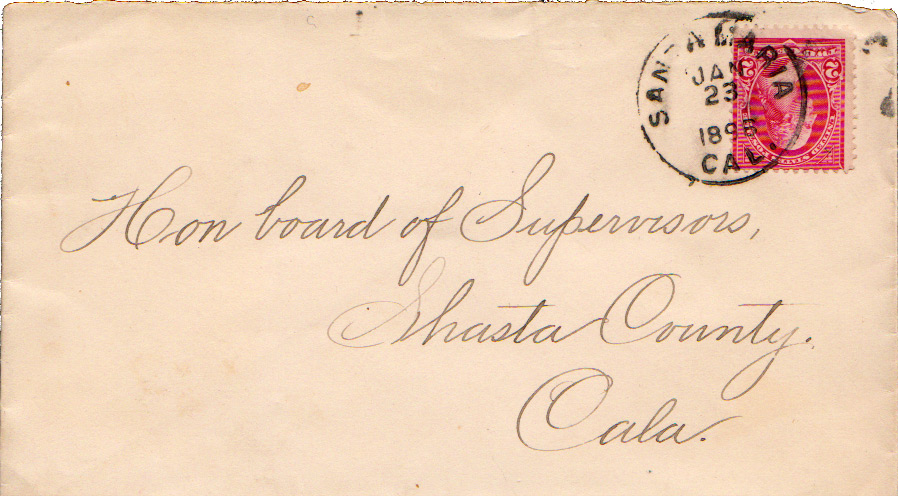 SANTA MARIA
JAN
23
CAL.
2 2
Hon board of Supervisors,
Shasta County.
Cala.